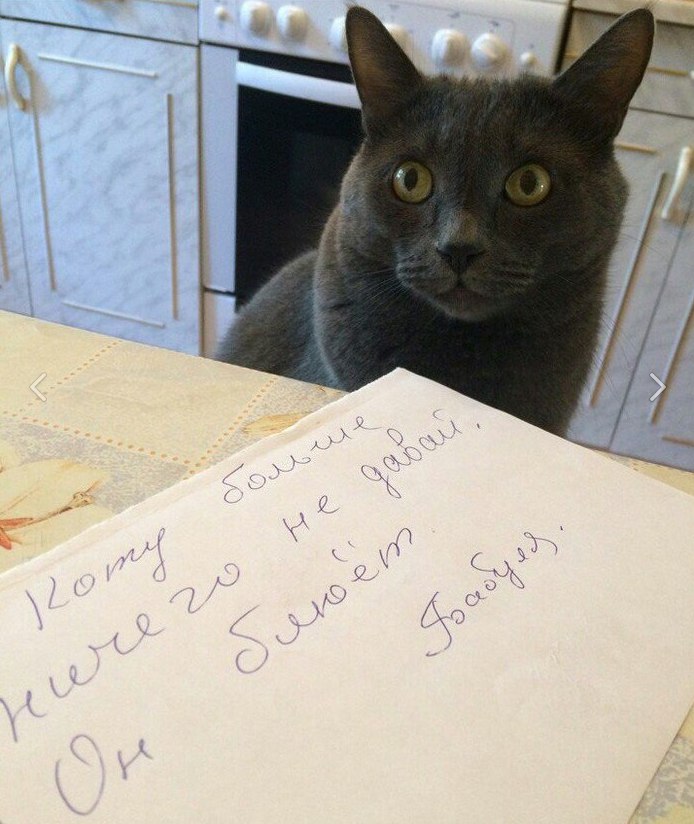 Кому больше
ничего не давай.
Он блюёт
Бабуля.